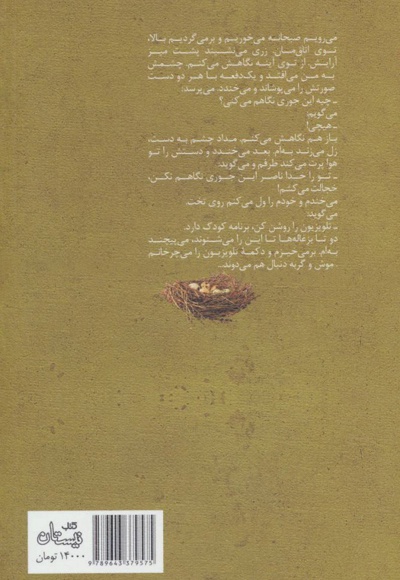 می‌رویم صبحانه می‌خوریم و برمی‌گردیم بالا،
توی اتاق‌مان. زری می‌نشیند پشت میز
آرایش از توی آینه نگاهش می‌کنم. چشمش
به من می‌افتد و یک‌دفعه با هر دو دست
صورتش را می‌پوشاند و می‌خندد. می‌پرسد:
ـ چیه این جوری نگاهم می‌کنی؟
می‌گویم:
ـ هیچی!
باز هم نگاهش می‌کنم. مداد چشم به دست،
زل می‌زند به‌ام. بعد می‌خندد و دستش را تو
هوا پرت می‌کند طرفم و می‌گوید:
ـ تو را خدا ناصر این جوری نگاهم نکن،
خجالت می‌کشم!
می‌خندم و خودم را ول می‌کنم روی تخت.
می‌گوید:
ـ تلویزیون را روشن کن، برنامه کودک دارد.
دو تا بزغاله‌ها تا این را می‌شنوند، می‌پیچند
به‌ام. برمی‌خیزم و دکمهٔ تلویزیون را می‌چرخانم.
موش و گربه دنبال هم می‌دوند...
کتاب
نیستان
۱۴۰۰۰ تومان
9 789643 379575